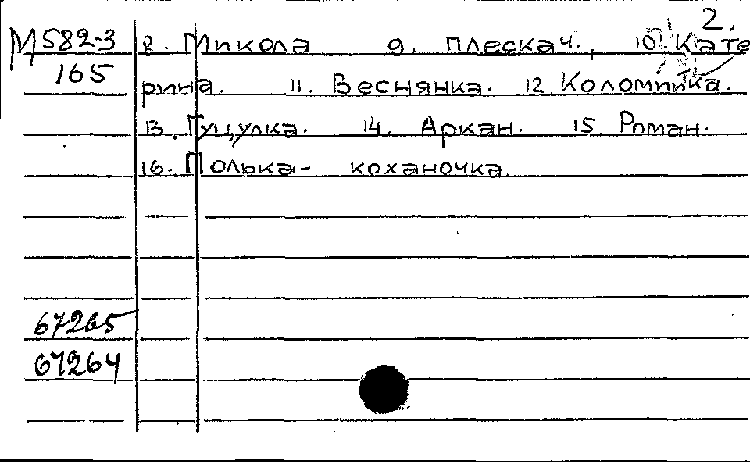 2.
М582-3 8. Микола 9. Плескач., 10. Кате
165 рина. 11. Веснянка. 12 Коломийка.
13. Гуцулка. 14. Аркан. 15 Роман.
16. Полька- коханочка.
67265
67264